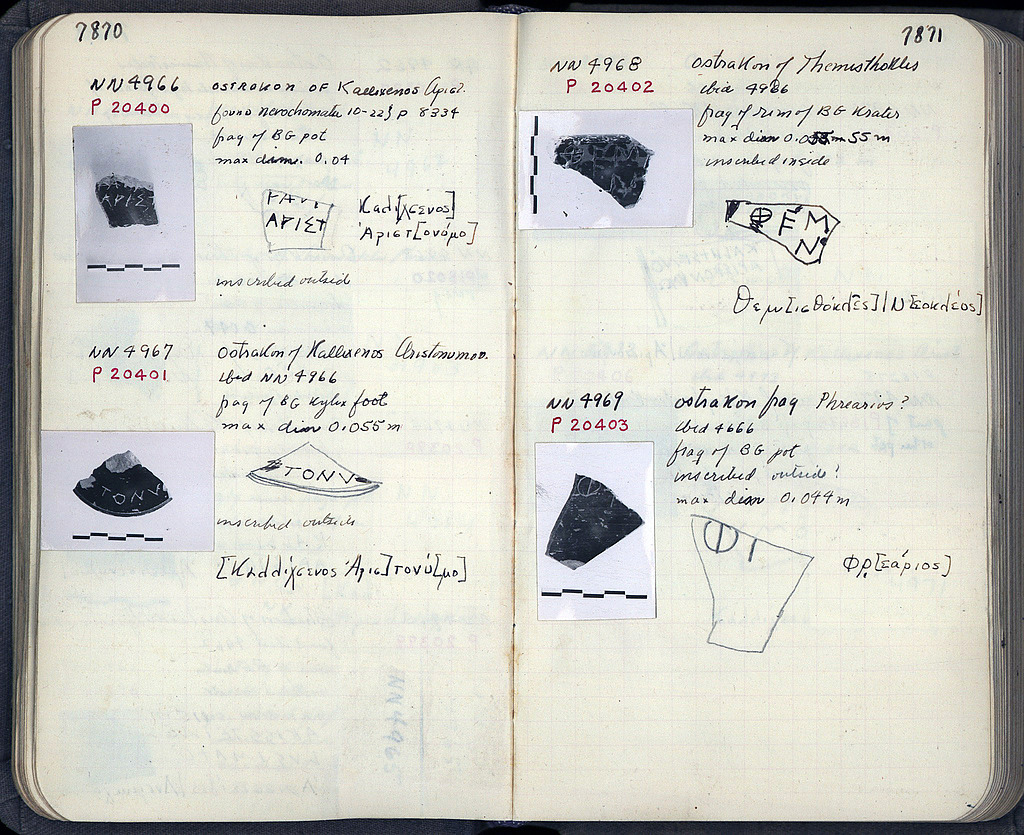 7870
NN 4966
P 20400
OSTRAKON OF Kallixenos Arist.
found nerochomata 10-22} P 8334
frag of BG pot
max diam. 0.04
ΑΡΙΣΤ
Καλλ[ίχσενος]
Ἀριστ[ονύμο]
inscribed outside
NN 4967
P 20401
ostrakon of Kallixenos Aristonumou.
ibid NN 4966
frag of BG Kylix foot
max diam 0.055 m
ΤΟΝΥ
inscribed outside
[Καλλίχσενος Ἀρισ]τονύ[μο]
7871
NN 4968
P 20402
ostrakon of Themisthokles
ibid 4966
frag of rim of BG Krater
max diam 0.055 m
inscribed inside
ΘΕΜ
Ν
Θεμ[ισθόκλες] | Ν[εοκλέος]
NN 4969
P 20403
ostrakon frag Phrearios?
ibid 4666
frag of BG pot
inscribed outside?
max diam 0.044 m
Φρ[εάριος]